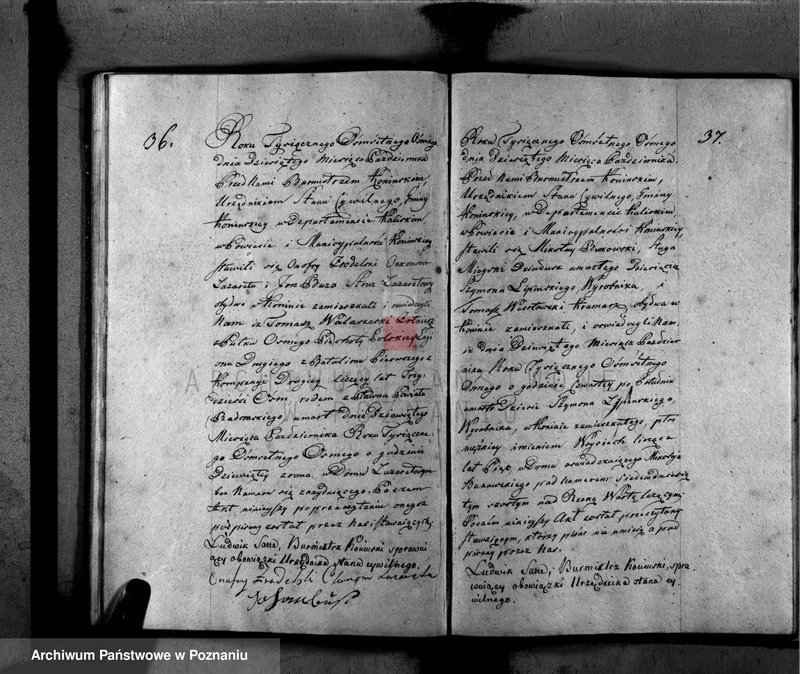 36.
Roku Tysiącznego Osmsetnego Osmego
dnia Dziewiątego Miesiąca Października
Przed Nami Burmistrzem Konińskim,
Urzędnikiem Stanu Cywilnego, Gminy
Konińskiey w Departamencie Kaliskim
w Powiecie i Municypalności Konińskiey
stawili się Onofry Ekonom
Lazaretu i Jan Stroz Lazaretowy
obydwa w Koninie zamieszkali i oświadczyli
Nam iż Tomasz Żołnierz
z Pułku Osmego Piechoty Polskiey Legii
onu Drugiego z Batalionu Pierwszego z
Kompanii Drugiey liczący lat Trzy
dzieści Osm, rodem z Powiatu
Radomskiego, umarł dnia Dziewiątego
Miesiąca Października Roku Tysiączne
go Osmsetnego Osmego o godzinie
Dziewiątey zrana w Domu Lazaretowym
bez Numeru się znayduiącego. Poczem
Akt ninieyszy po przeczytaniu onegoż
podpisany został przez Nas i Stawaiących
Ludwik Burmistrz Koninski sprawu
iący obowiązki Urzędnika stanu cywilnego.
Onofry
37.
Roku Tysiącznego Osmsetnego Osmego
dnia Dziewiątego Miesiąca Października.
Przed Nami Burmistrzem Konińskim,
Urzędnikiem Stanu Cywilnego, Gminy
Konińskiey, w Departamencie Kaliskim,
w Powiecie i Municypalności Konińskiey,
stawili się Mikołay Bukowski, Sługa
Mieyski umarłego Dziecięcia
Szymona Lipinskiego Wyrobnika, i
Tomasz Kramarz, obydwa w
Koninie zamieszkali, i oświadczyli Nam,
iż dnia Dziewiątego Miesiąca Paździer
nika Roku Tysiącznego Osmsetnego
Osmego o godzinie Czwartey po Południu
umarło Dziecie Szymona Lipinskiego,
Wyrobnika, w Koninie zamieszkałego, płci
męzkiey imieniem Woyciech liczące
lat Pięć, w Domu oświadczaiącego Mikołaja
Bukowskiego pod numerem Siedemdziesią
tym szostym nad Rzeką Wartą leżącym,
Poczém ninieyszy Akt został przeczytany
Stawaiącym, ktorzy pisać nie umieią a pod
pisany przez Nas.
Ludwik Burmistrz Koninski, spra
wuiący obowiązki Urzędnika stana cy
wilnego.
Archiwum Państwowe w Poznaniu